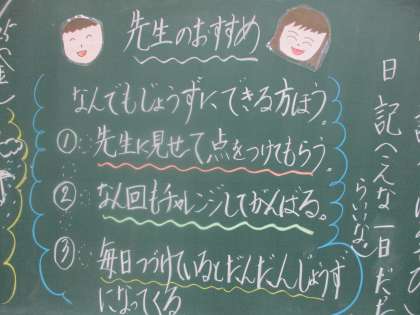 先生のおすすめ
なんでもじょうずにできる方ほう。
① 先生に見せて点をつけてもらう。
② なん回もチャレンジしてがんばる。
③ 毎日つづけているとだんだんじょうず
になってくる
日記へこんな一日だ
らいいな。